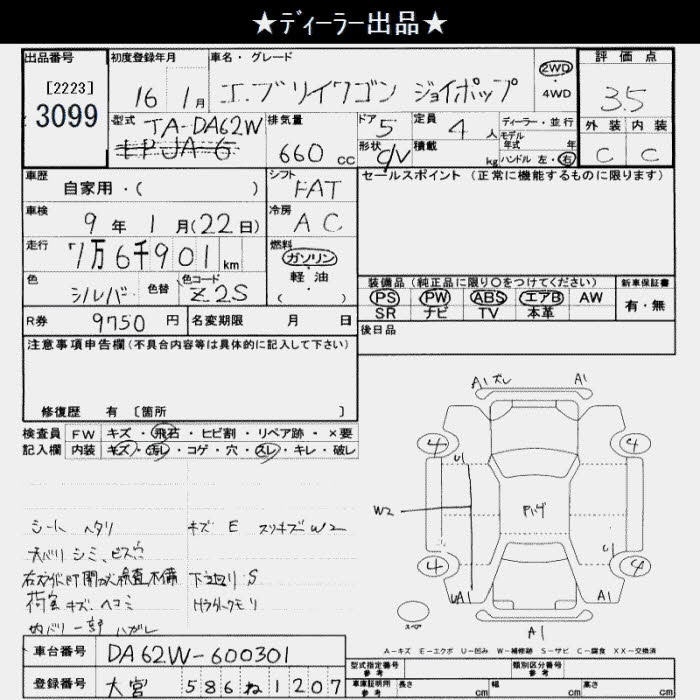 ★ディーラー出品★
出品番号
[2223]
3099
初度登録年月
16 1月
車名・グレード
エブリイワゴン ジョイポップ
2WD
・4WD
評価点
3.5
型式
TA-DA62W
排気量
660 cc
ドア 5
形状 C/V
定員 4人
積載 kg
ディーラー・並行
モデル年式 年
ハンドル 左・右
外装 内装
C C
車歴
自家用・( )
シフト
FAT
セールスポイント(正常に機能するものに限ります)
車検
9年1月(22日)
冷房
AC
走行
7万6千901km
燃料
ガソリン
・軽油
( )
色
シルバー
色替
色コード
Z2S
装備品(純正品に限り○をつけてください)
PS PW ABS エアB AW
SR ナビ TV 本革
新車保証書
有・無
R券 9750円
名変期限 月 日
後日品
注意事項申告欄(不具合内容等は具体的に記入して下さい)
修復歴 有 〔箇所 〕
検査員 FW キズ・飛石・ヒビ割・リペア跡・×要
記入欄 内装 キズ・汚レ・コゲ・穴・スレ・キレ・破レ
シート ヘタリ
キズ E スリキズ W2
天バリ シミ、ビス穴
下廻り S
荷室 キズ、ヘコミ
Hライトクモリ
内バリ 一部 ハガレ
A1 ズレ A1
4 4
U1
W2
Pハゲ
U1
4 4
UA1 A1
スペア
A1
A-キズ E-エクボ U-凹み W-補修跡 S-サビ C-腐食 XX-交換済
車台番号 DA62W-600301
登録番号 大宮 586 ね 1207
型式指定番号 参考
類別区分番号 参考
車庫証明用 参考 長さ cm 幅 cm 高さ cm